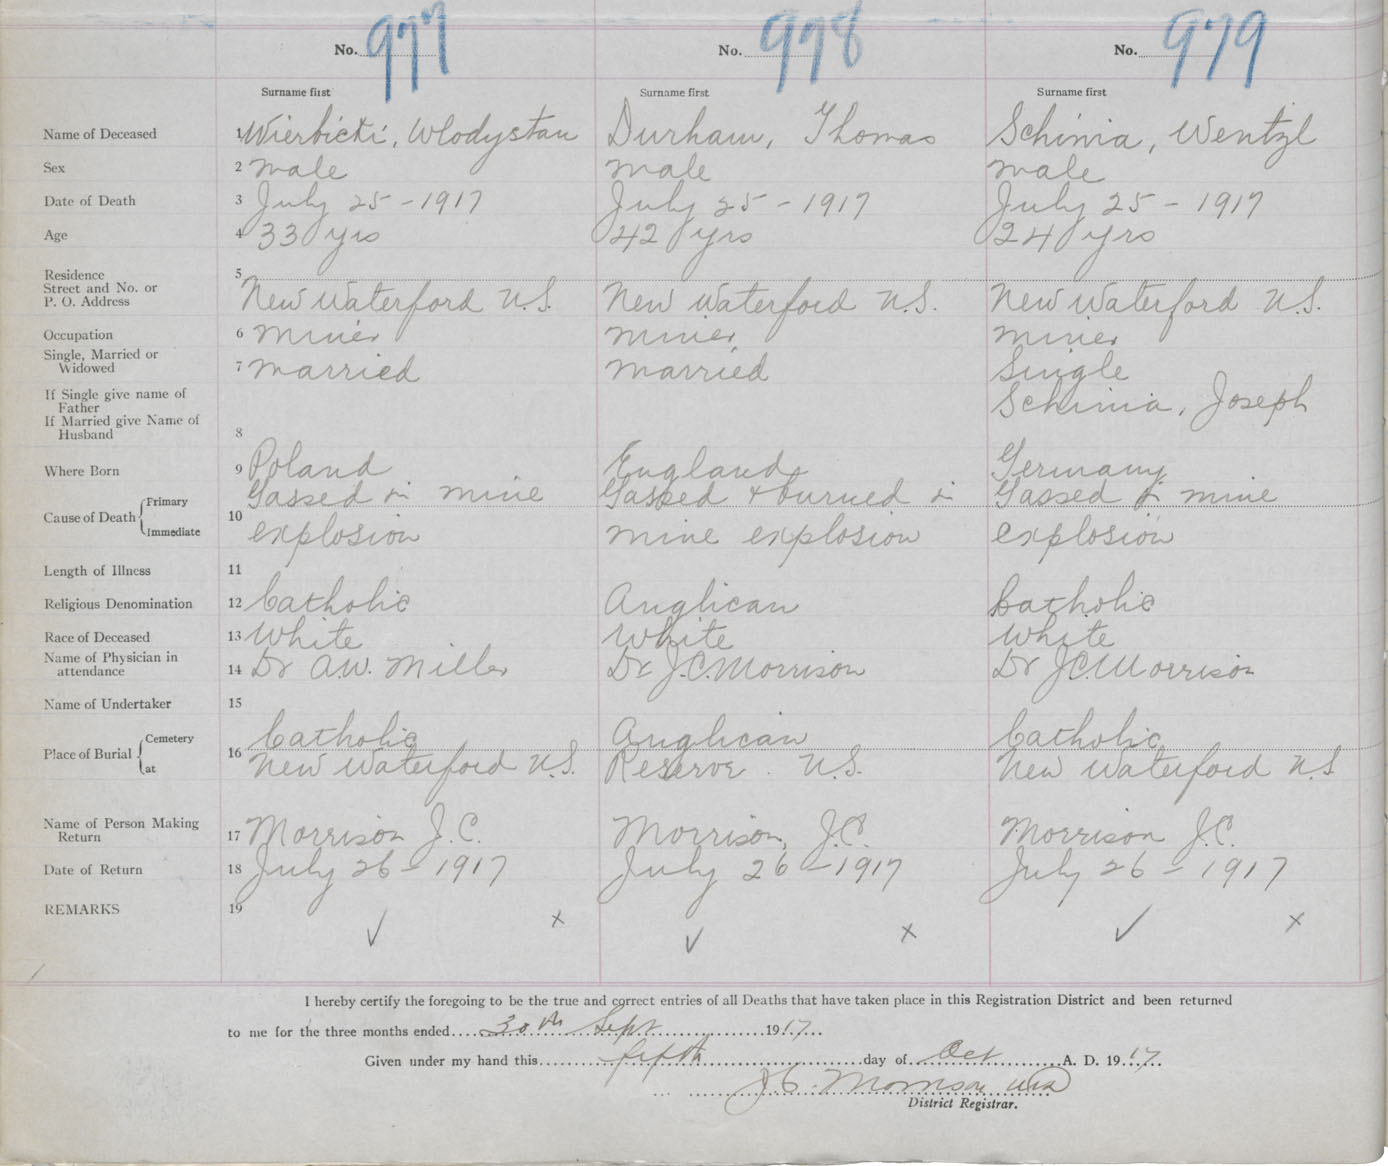 No. 977 No. 978 No. 979
Surname first Surname first Surname first
Name of Deceased 1 Wierbicki, Wlodystau Durham, Thomas Schinia, Wentzl
Sex 2 male male male
Date of Death 3 July 25 - 1917 July 25 - 1917 July 25 - 1917
Age 4 33 yrs 42 yrs 24 yrs
Residence 5
Street and No. or
P. O. Address New Waterford N.S. New Waterford N.S. New Waterford N.S.
Occupation 6 miner miner miner
Single, Married or
Widowed 7 married married Single
If Single give name of
Father Schinia, Joseph
If Married give Name of
Husband 8
Where Born 9 Poland England Germany
Cause of Death { Primary Gassed in mine Gassed & burned in Gassed in mine
10
Immediate explosion mine explosion explosion
Length of Illness 11
Religious Denomination 12 Catholic Anglican Catholic
Race of Deceased 13 White White White
Name of Physician in
attendance 14 Dr A.W. Miller Dr J.C. Morrison Dr J.C. Morrison
Name of Undertaker 15
Place of Burial { Cemetery Catholic Anglican Catholic
16
at New Waterford N.S. Reserve N.S. New Waterford N.S
Name of Person Making
Return 17 Morrison J.C. Morrison, J.C. Morrison J.C.
Date of Return 18 July 26 - 1917 July 26 - 1917 July 26 - 1917
REMARKS 19
✓ x ✓ x ✓ x
I hereby certify the foregoing to be the true and correct entries of all Deaths that have taken place in this Registration District and been returned
to me for the three months ended 30th Sept 1917
Given under my hand this fifth day of Oct A. D. 1917
J C. Morrison
District Registrar.